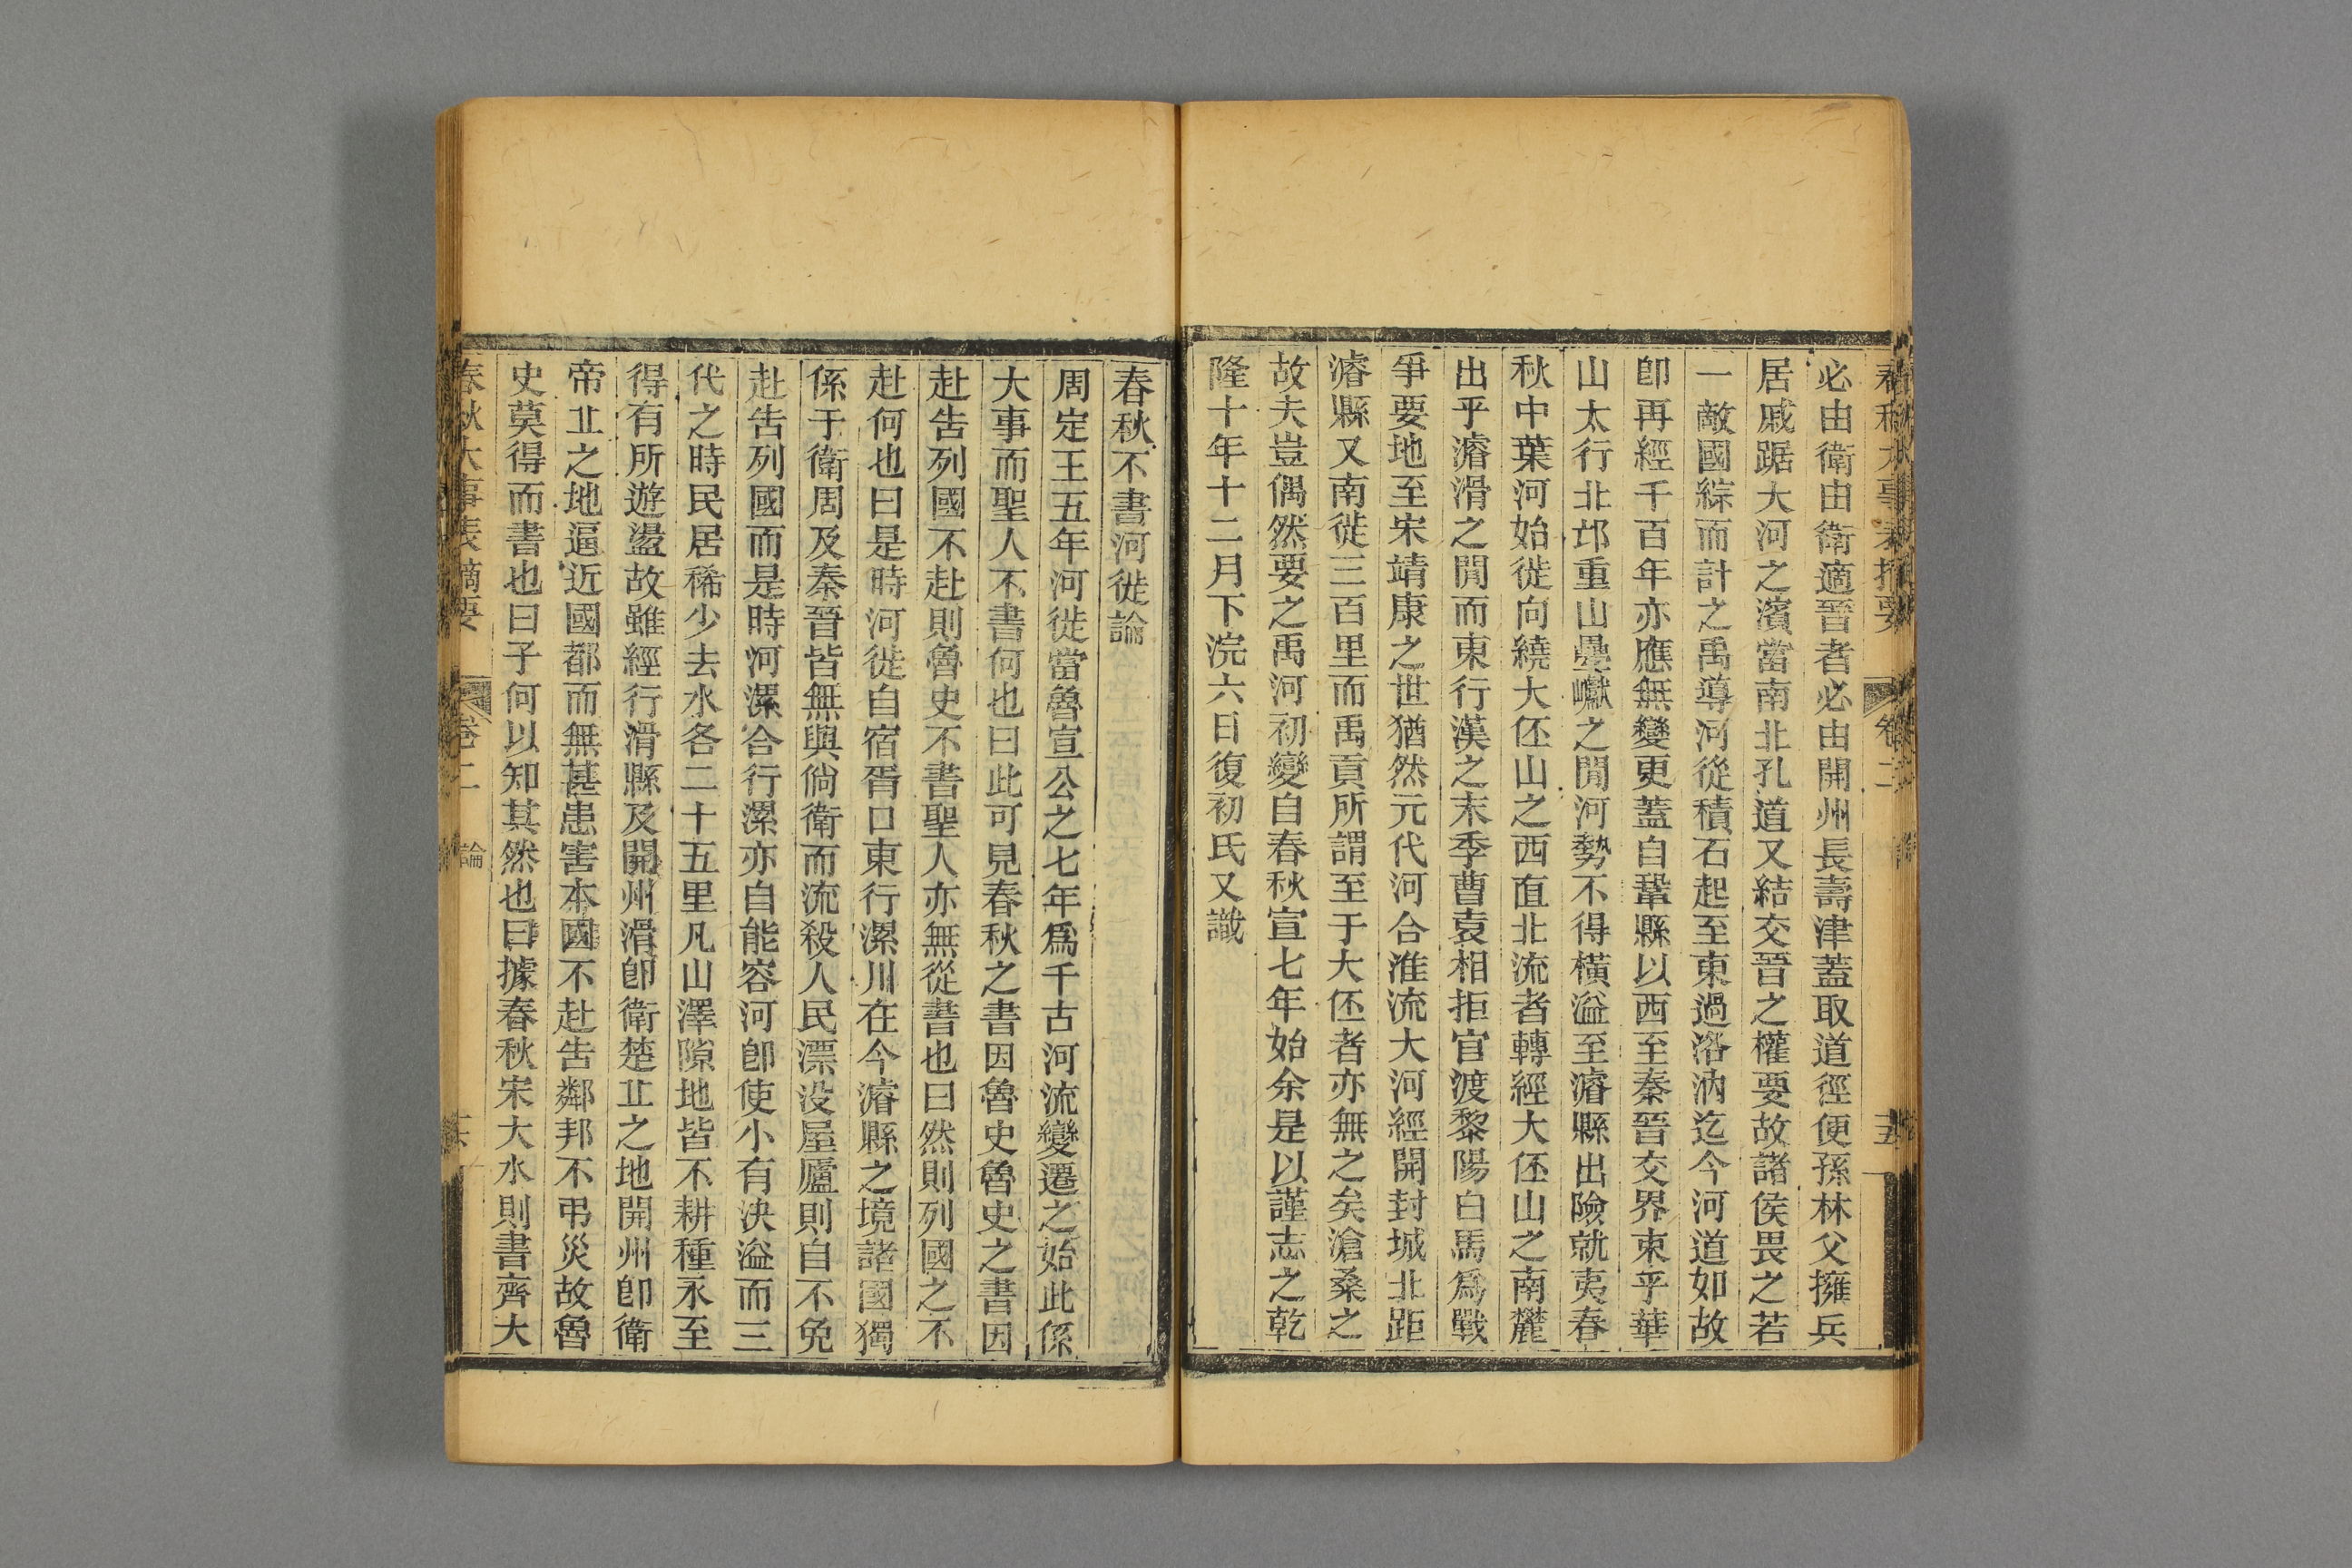 春秋大事表摘要 卷二 論 五
必由衛由衛適晉者必由開州長壽津蓋取道徑便孫林父擁兵
居戚踞大河之濱當南北孔道又結交晉之權要故諸侯畏之若
一敵國綜而計之禹導河從積石起至東過洛汭迄今河道如故
卽再經千百年亦應無變更蓋自鞏縣以西至秦晉交界東乎華
山太行北邙重山疊巘之閒河勢不得橫溢至濬縣出險就夷春
秋中葉河始徙向繞大伾山之西直北流者轉經大伾山之南麓
出乎濬滑之閒而東行漢之末季曹袁相拒官渡黎陽白馬爲戰
爭要地至宋靖康之世猶然元代河合淮流大河經開封城北距
濬縣又南徙三百里而禹貢所謂至于大伾者亦無之矣滄桑之
故夫豈偶然要之禹河初變自春秋宣七年始余是以謹志之乾
隆十年十二月下浣六日復初氏又識
春秋不書河徙論
周定王五年河徙當魯宣公之七年爲千古河流變遷之始此係
大事而聖人不書何也曰此可見春秋之書因魯史魯史之書因
赴告列國不赴則魯史不書聖人亦無從書也曰然則列國之不
赴何也曰是時河徙自宿胥口東行漯川在今濬縣之境諸國獨
係于衛周及秦晉皆無與倘衛而流殺人民漂没屋廬則自不免
赴告列國而是時河漯合行漯亦自能容河卽使小有決溢而三
代之時民居稀少去水各二十五里凡山澤隙地皆不耕種永至
得有所遊盪故雖經行滑縣及開州滑卽衛楚丘之地開州卽衛
帝丘之地逼近國都而無甚患害本國不赴告鄰邦不弔災故魯
史莫得而書也曰子何以知其然也曰據春秋宋大水則書齊大
春秋大事表摘要 卷二 論